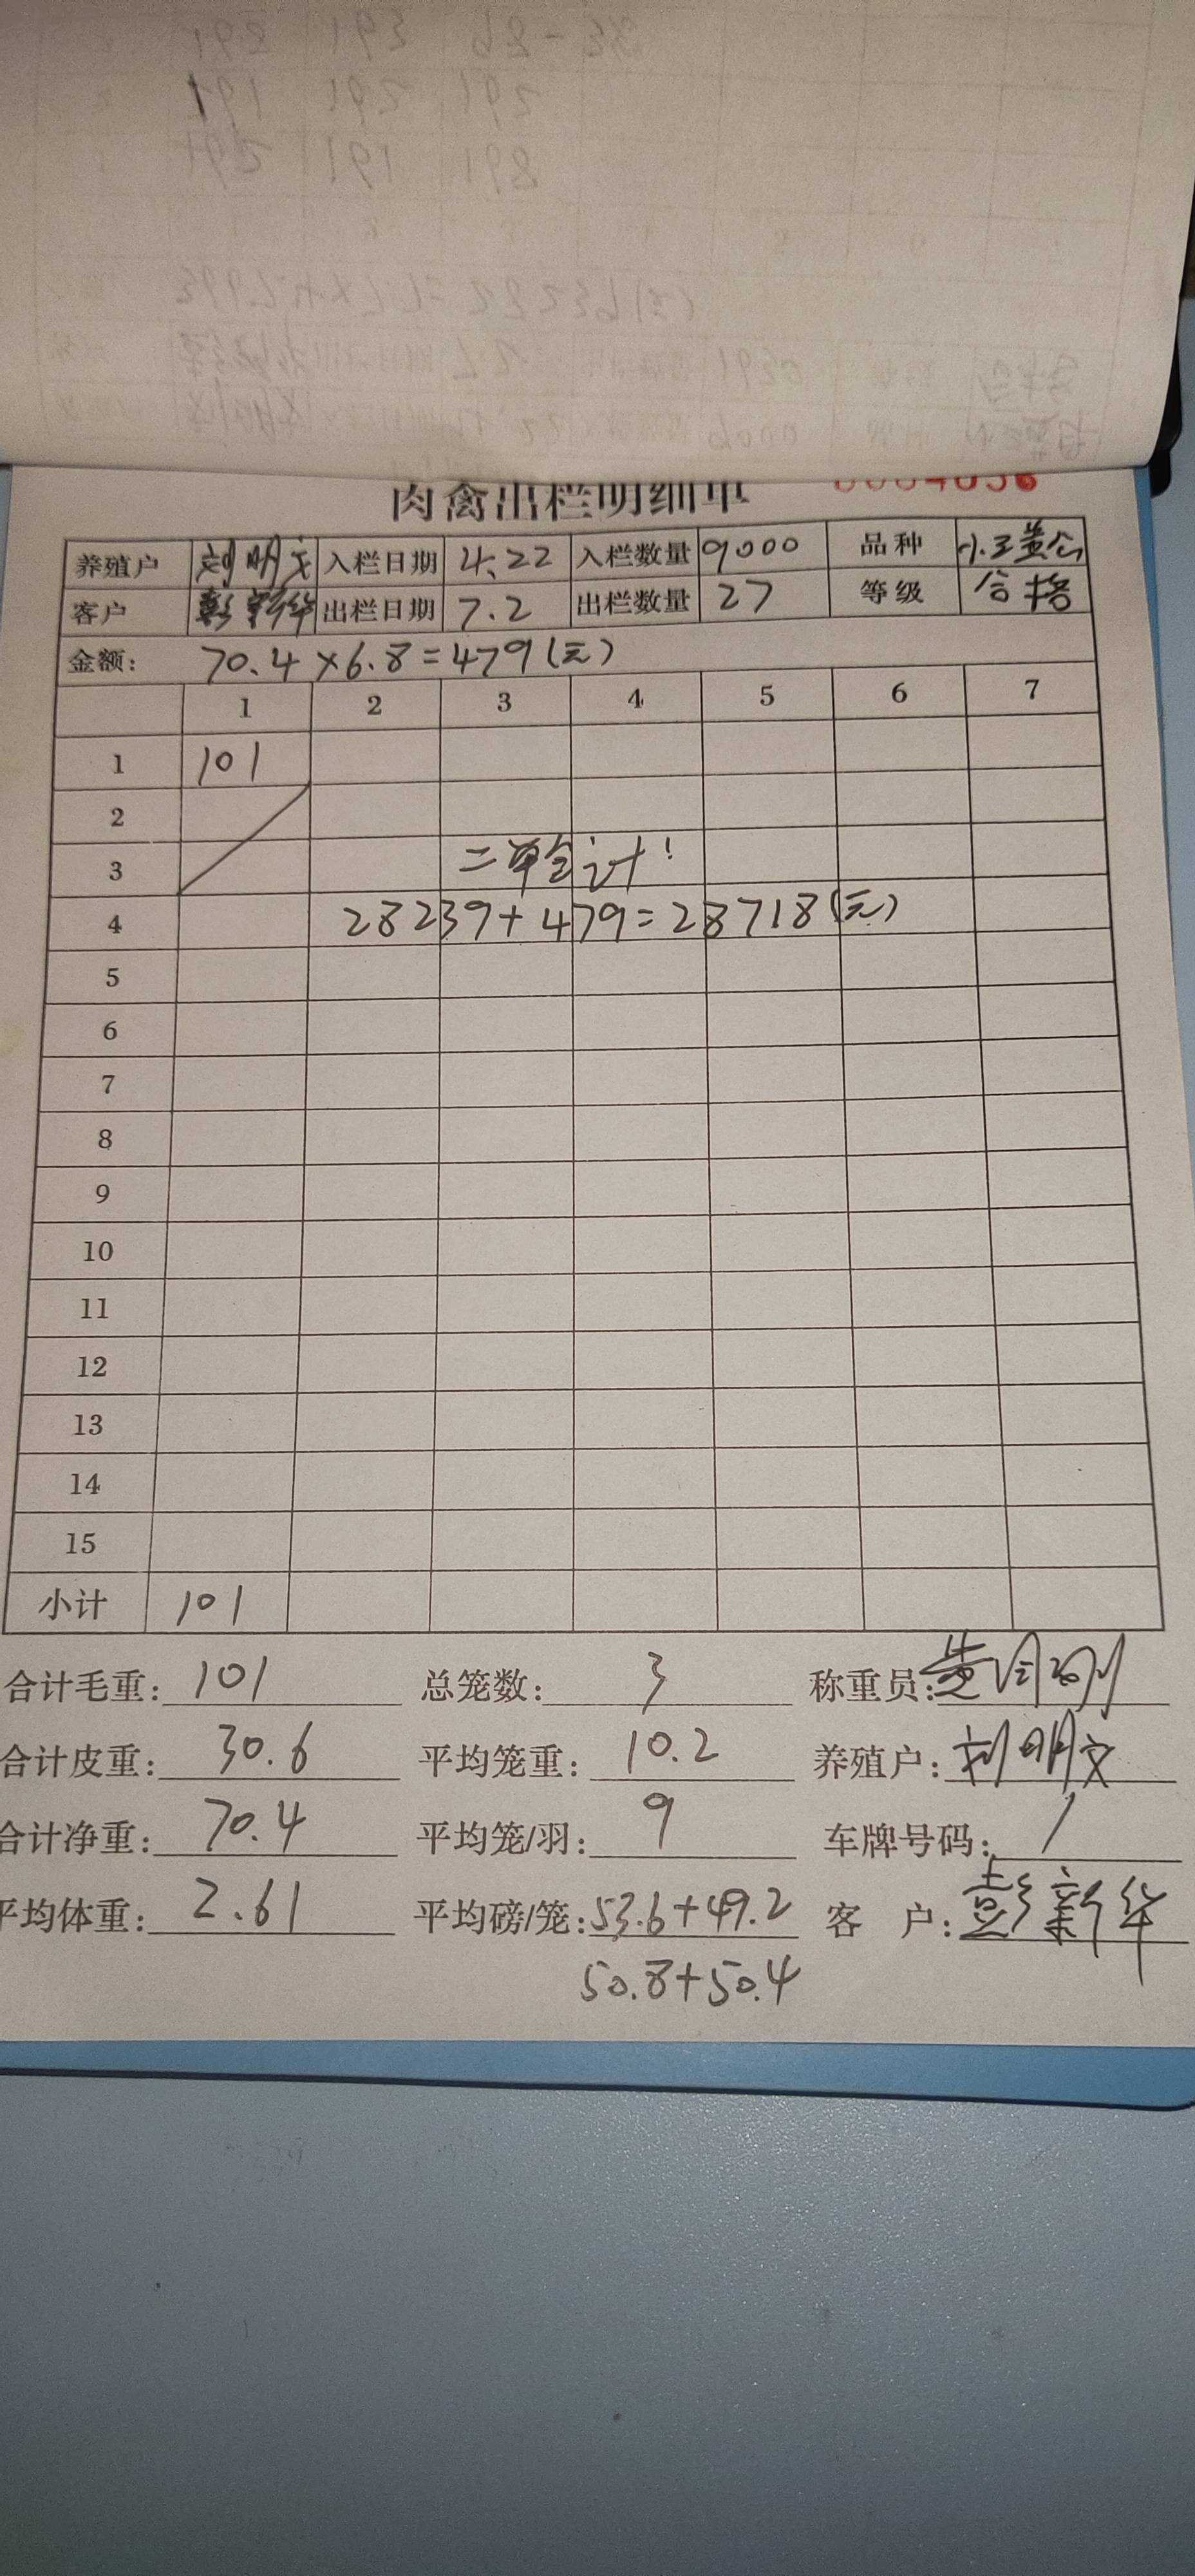 肉禽出栏明细单
养殖户 刘明文 入栏日期 4.22 入栏数量 9000 品种
客户 彭新华 出栏日期 7.2 出栏数量 27 等级 合格
金额: 70.4×6.8=479(元)
1 2 3 4 5 6 7
1 101
2
3 二单合计!
4 28239+479=28718(元)
5
6
7
8
9
10
11
12
13
14
15
小计 101
合计毛重: 101 总笼数: 3 称重员:
合计皮重: 30.6 平均笼重: 10.2 养殖户: 刘明文
合计净重: 70.4 平均笼/羽: 9 车牌号码: /
平均体重: 2.61 平均磅/笼: 53.6+49.2 客 户: 彭新华
50.8+50.4